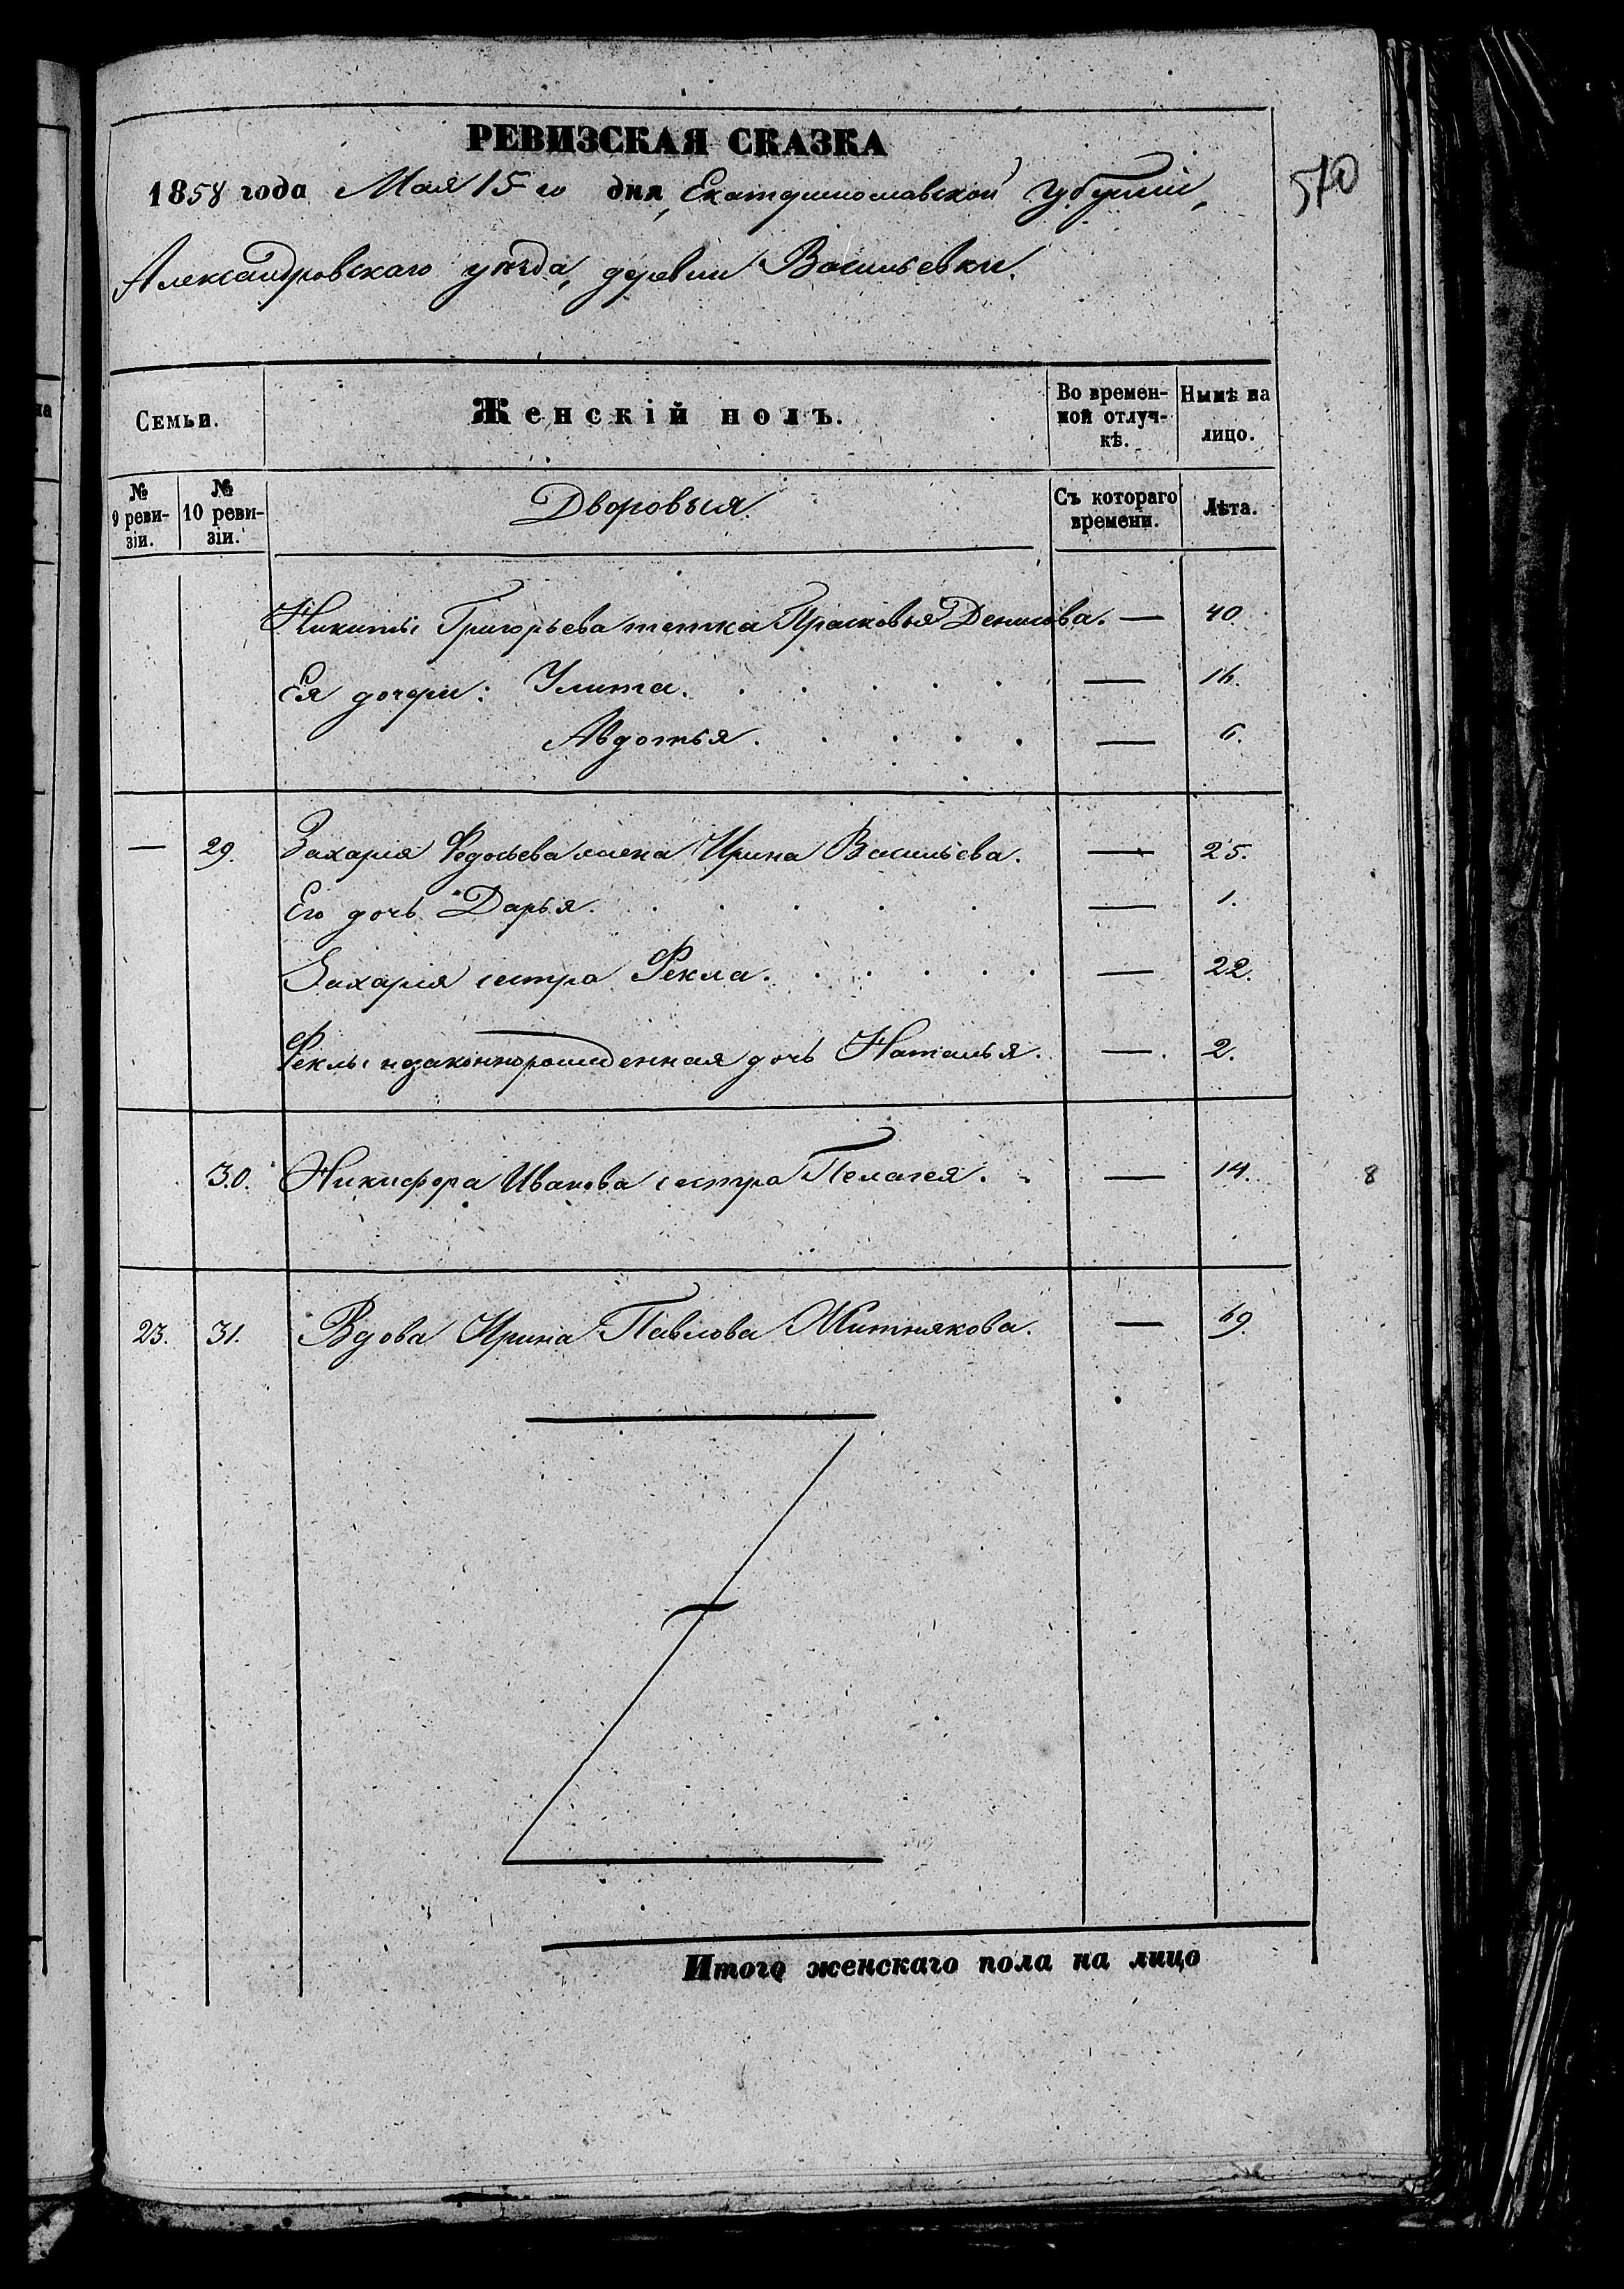 РЕВИЗСКАЯ СКАЗКА
1858 года Мая 15го дня, Екатеринославской Губерніи,
570
Александровскаго уѣзда, деревни Васильевки.
Семьи.
Женскій полъ.
Во времен-
ной отлуч-
кѣ.
Нынѣ на
лицо.
№
9 реви-
зіи.
№
10 реви-
зіи.
Дворовыя.
Съ котораго
времени.
Лѣта.
Никиты Григорьева тетка Прасковья Денисова. — 40
Ея дочери: Улита. . . . . . — 16.
Авдотья. . . . . . — 6.
— 29. Захарія Федосѣева жена Ирина Васильева. — 25.
Его дочь Дарья. . . . . . — 1.
Захарія сестра Фекла. . . . . . — 22.
Феклы незаконнорожденная дочь Наталья. — . 2.
30. Никифора Иванова сестра Пелагея. — 14.
8
23. 31. Вдова Ирина Павлова Житнякова. — 69.
Итого женскаго пола на лицо